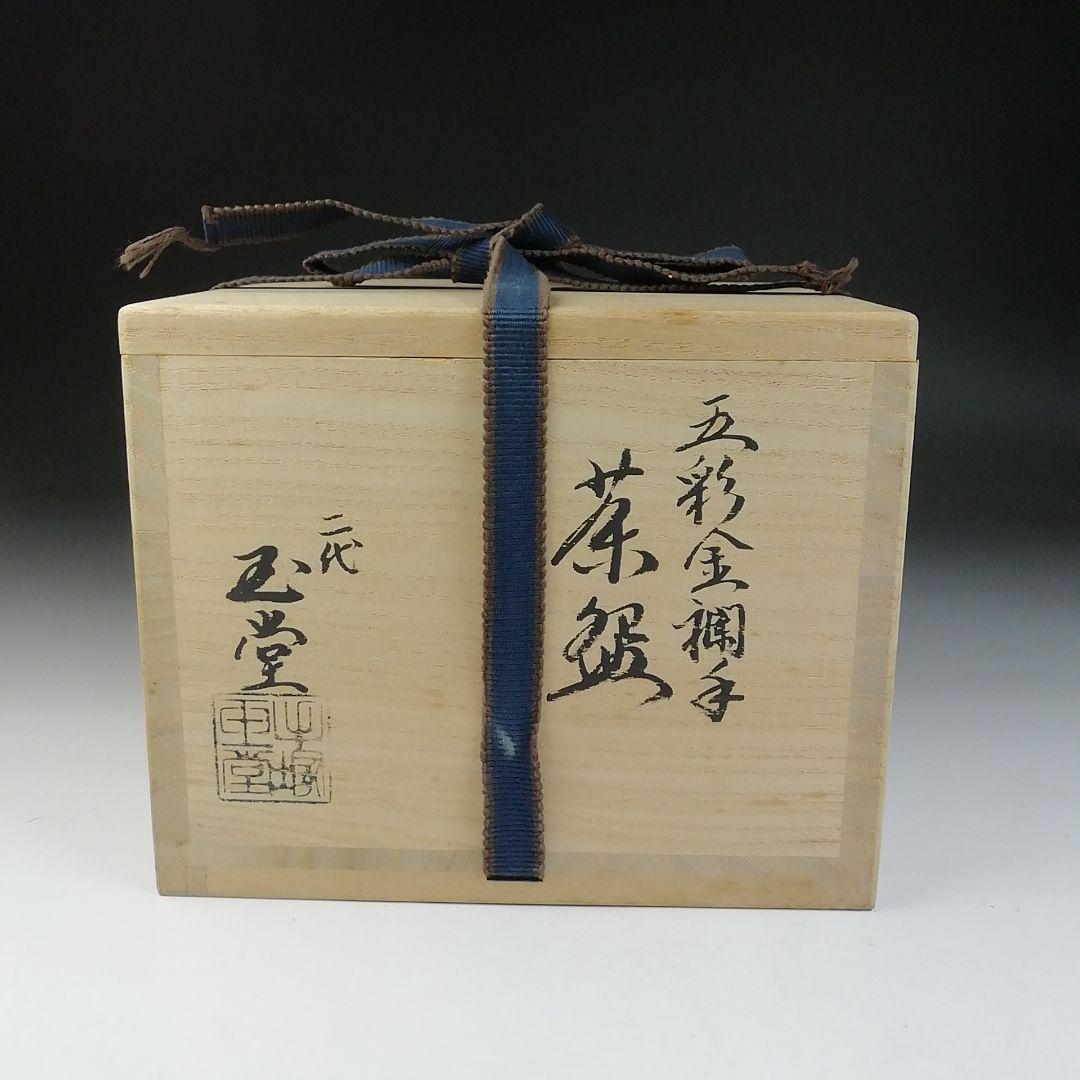 五彩金襴手
茶盌
二代
玉堂
平塚
玉堂